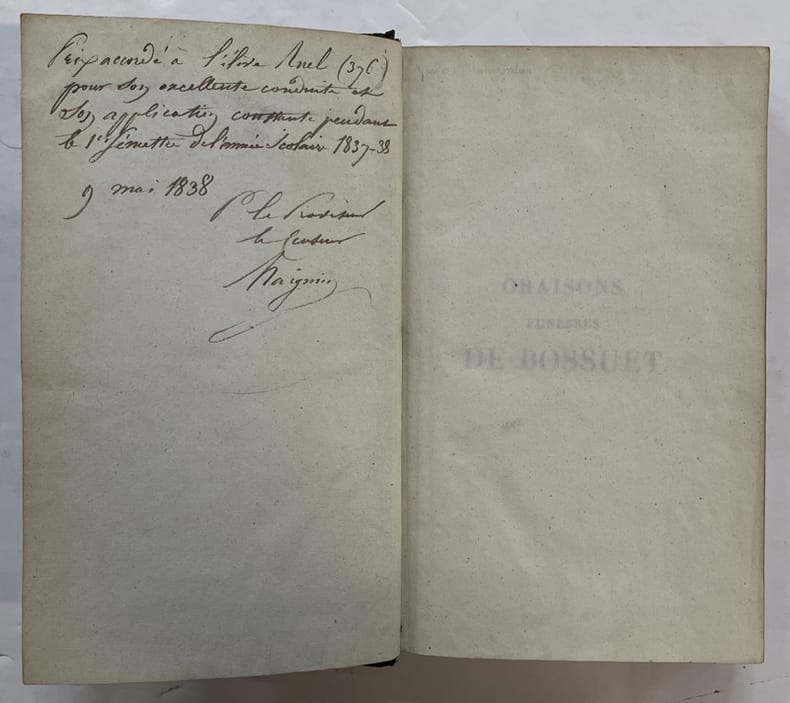 Prix accordé à l'élève Ruel (376)
pour son excellente conduite et
son application constante pendant
le 1er Sémestre de l'année Scolaire 1837-38
9 mai 1838
Pr le Proviseur
le Censeur
ORAISONS
FUNÈBRES
DE BOSSUET